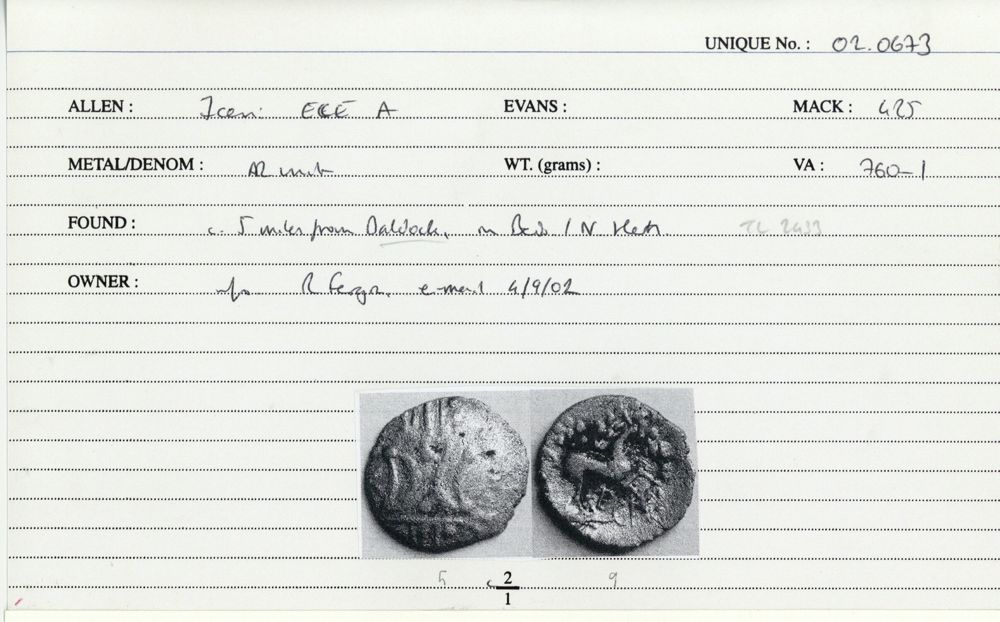 UNIQUE No. : 02.0673
ALLEN : Iceni ECE A EVANS : MACK : 425
METAL/DENOM : AR unit WT. (grams) : VA : 760-1
FOUND : c. 5 miles from Baldock, in Beds / N Herts TL 2433
OWNER : info R e-mail 4/9/02
5 c 2/1 9